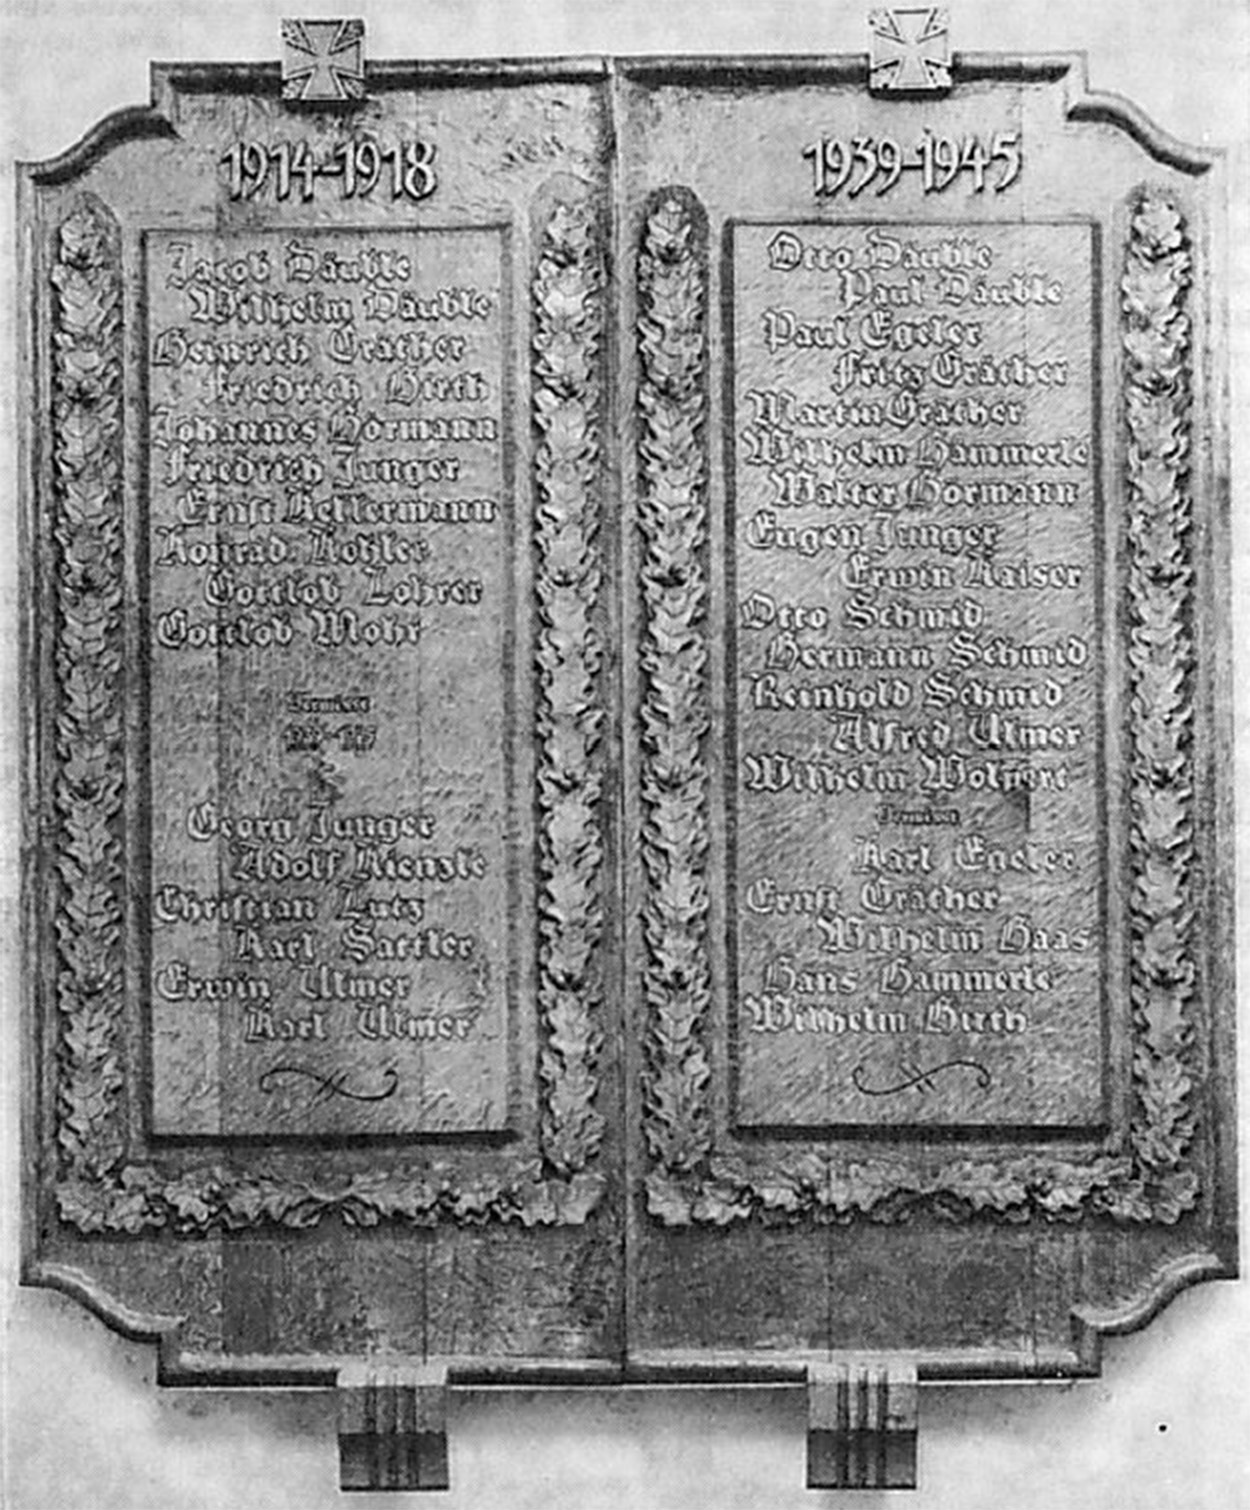 1914-1918
Jacob Däuble
Wilhelm Däuble
Heinrich Gräther
Friedrich Hirth
Johannes Hörmann
Friedrich Junger
Ernst Kellermann
Konrad Kohler
Gottlob Lohrer
Gottlob Mohr
Vermisst
Georg Junger
Adolf Kienzle
Christian Lutz
Karl Sattler
Erwin Ulmer
Karl Ulmer
1939-1945
Otto Däuble
Paul Däuble
Paul Egeler
Fritz Gräther
Martin Gräther
Wilhelm Hämmerle
Walter Hörmann
Eugen Junger
Erwin Kaiser
Otto Schmid
Hermann Schmid
Reinhold Schmid
Alfred Ulmer
Wilhelm Wolpert
Vermisst
Karl Egeler
Ernst Gräther
Wilhelm Haas
Hans Hämmerle
Wilhelm Hirth